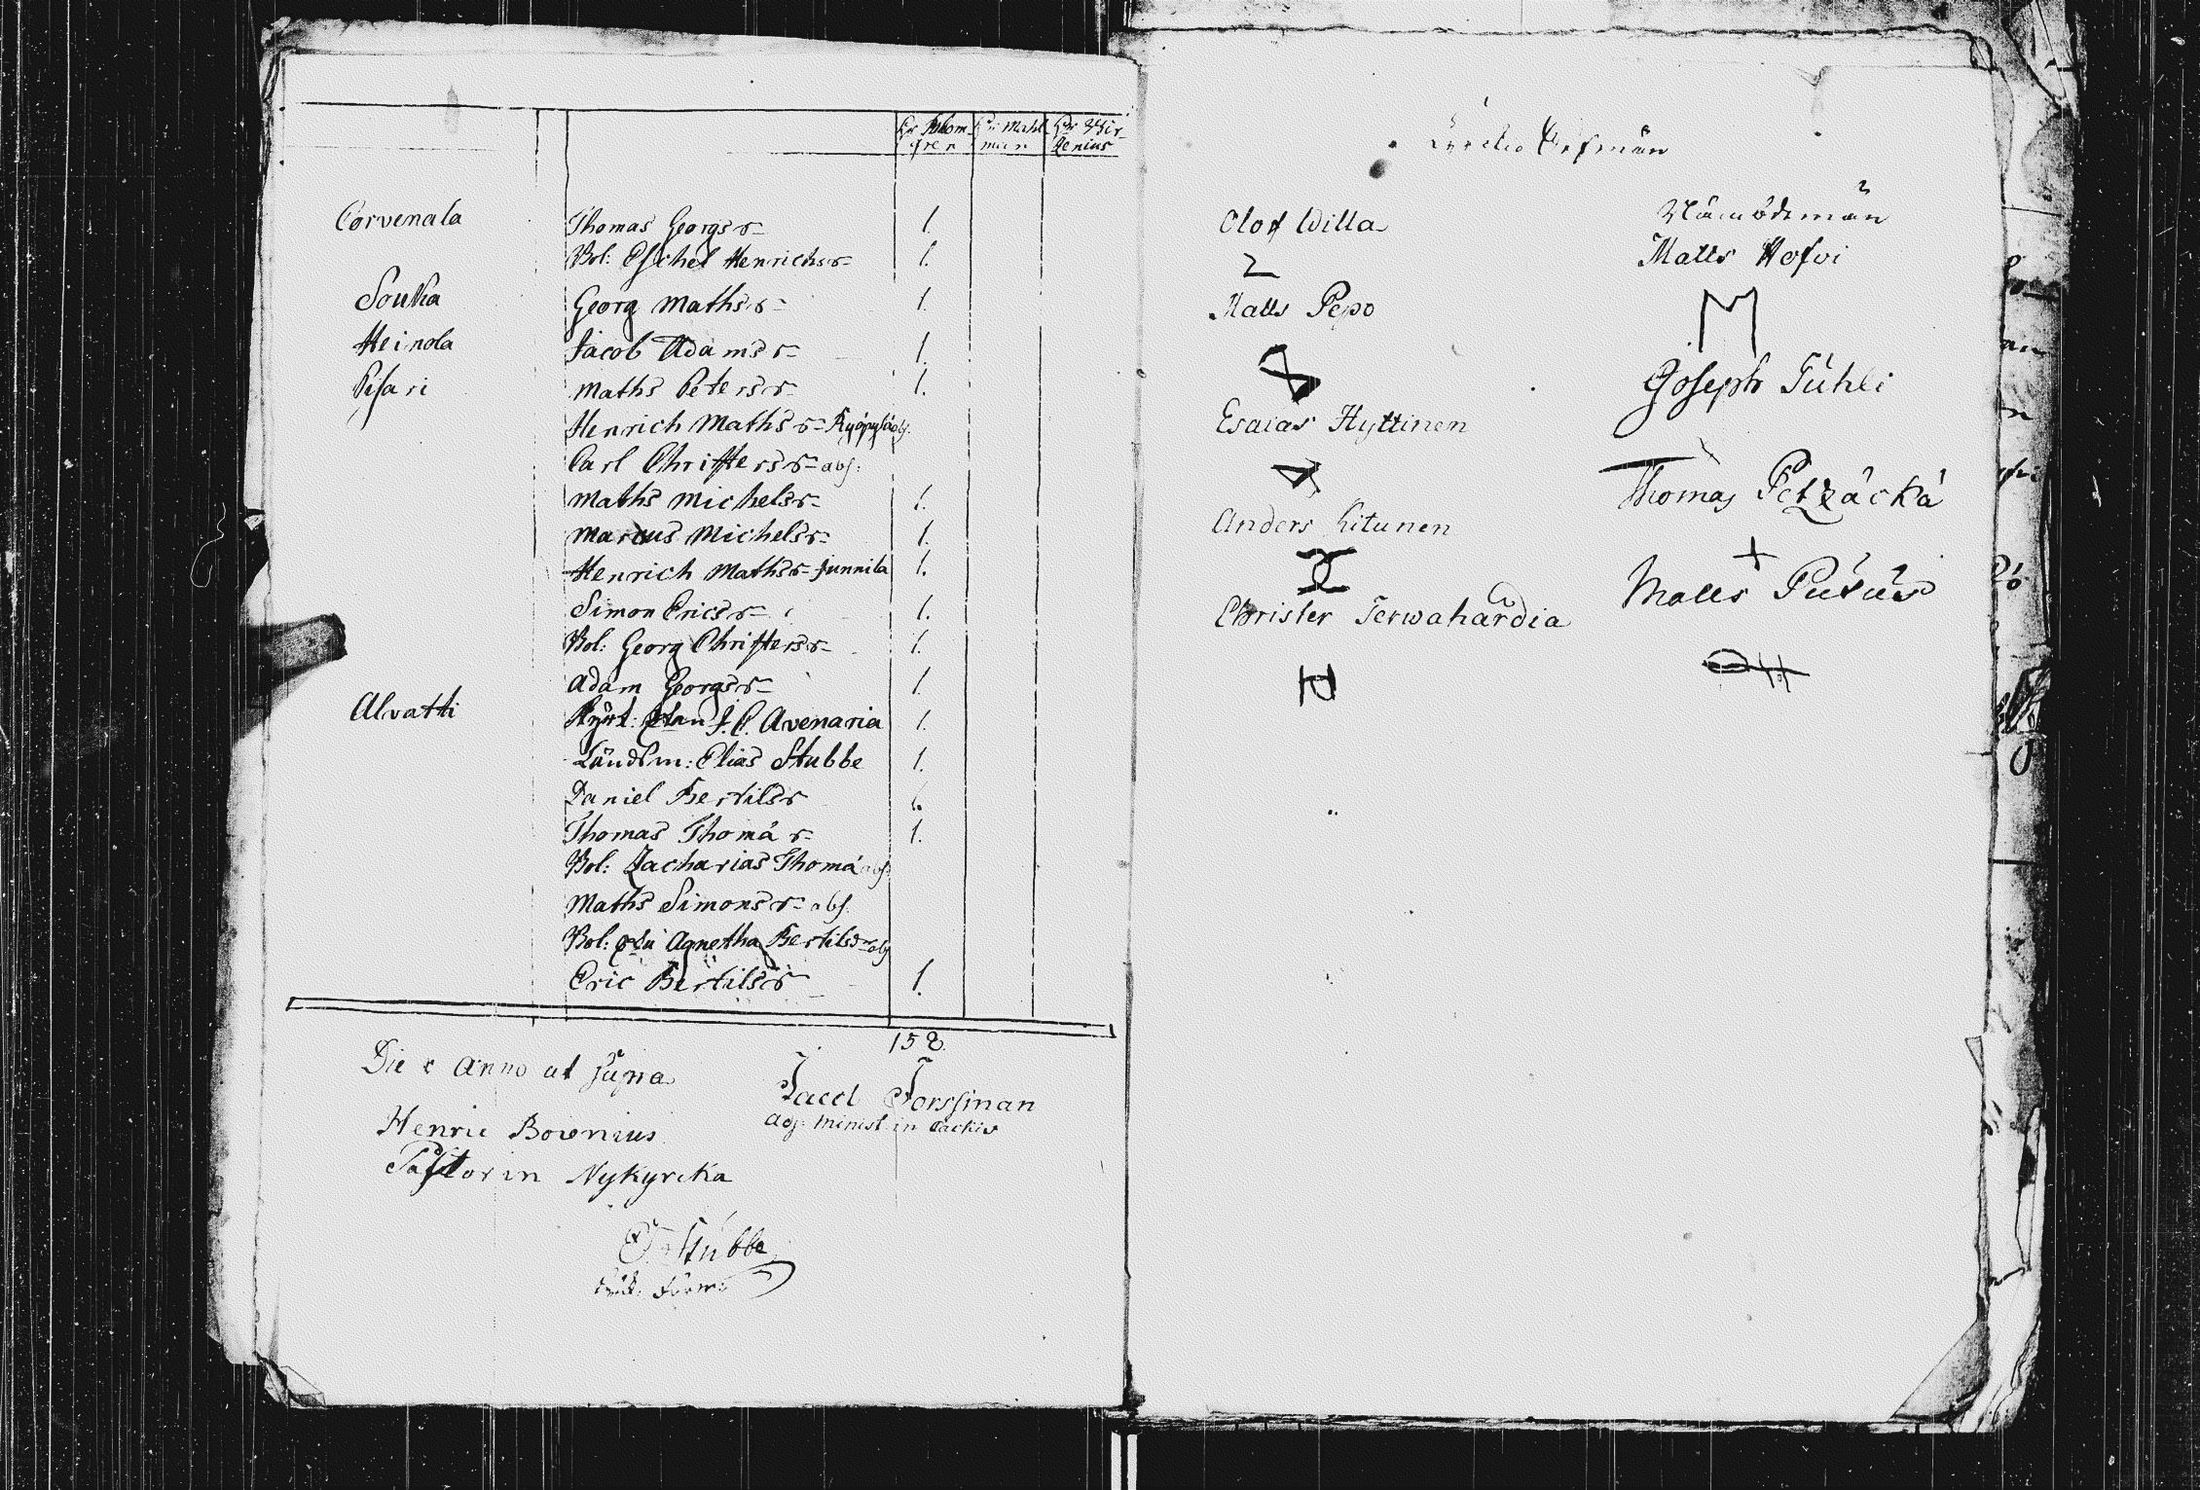 Hr Blom- Hr Mahl- Hr Wir-
gren man zenius
Corvenala Thomas Georgss- 1.
Bol: Eschel Henrichss- 1.
Souka Georg Mathss- 1.
Heinola Jacob Adamss- 1.
Pisari Maths Peterss- 1.
Henrich Mathss- Kyöpylä abs.
Carl Christerss- abs:
Maths Michelss- 1.
Marcus Michelss- 1.
Henrich Mathss- Junnila 1.
Simon Ericss- 1.
Bol: Georg Christerss- 1.
Adam Georgss- 1.
Alvatti J. C. Avenaria 1.
Ländsm: Elias Stubbe 1.
Daniel Bertilss 1.
Thomas Thomä s- 1.
Bol: Zacharias Thomä abs.
Maths Simonss- abs.
Bol: Agnetha Bertilsd- abs
Eric Bertilss 1.
158.
Die & Anno ut supra
Henric Bovenius
Pastor in Nykyrcka
Jacob Forssman
adj. Minist. in
E. Stubbe
Olof Willa
Matts Pepo
Esaias Hyttinen
Anders Kitunen
Christer Terwahardia
Nämdemän
Matts Hofvi
M
Joseph Tuhli
Thomas Petzäckä
+
Matts Putus